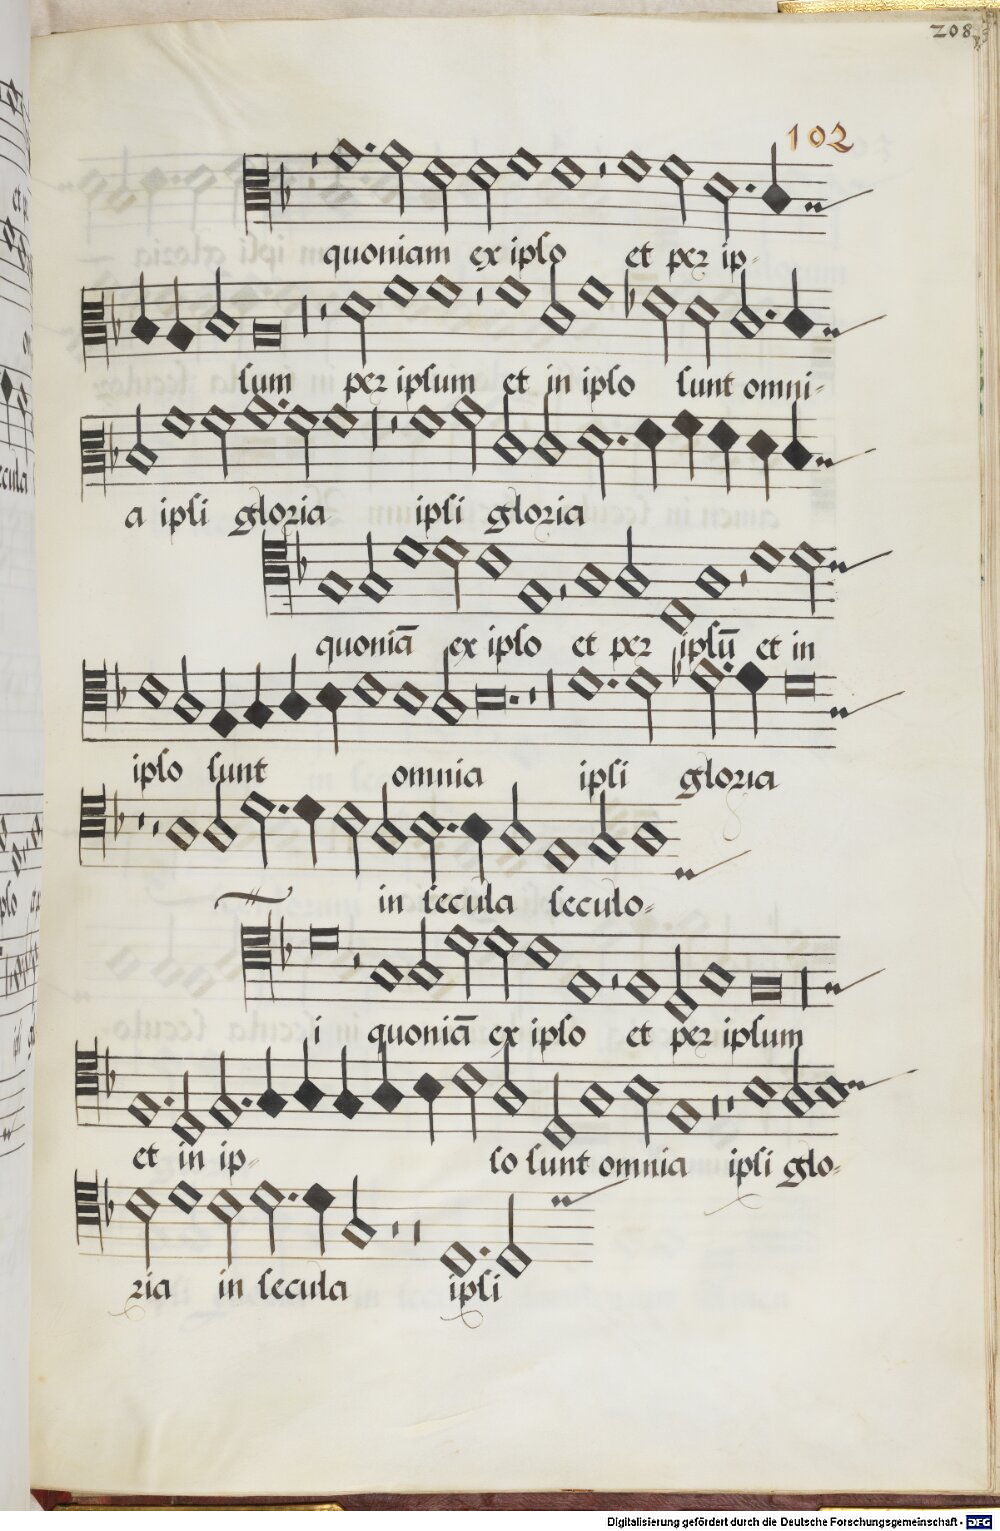 208
102
quoniam ex ipso et per ip-
sum per ipsum et in ipso sunt omni-
a ipsi gloria ipsi gloria
quoniā ex ipso et per ipsū et in
ipso sunt omnia ipsi gloria
in secula seculo-
i quoniā ex ipso et per ipsum
et in ip- so sunt omnia ipsi glo-
ria in secula ipsi
Digitalisierung gefördert durch die Deutsche Forschungsgemeinschaft - DFG